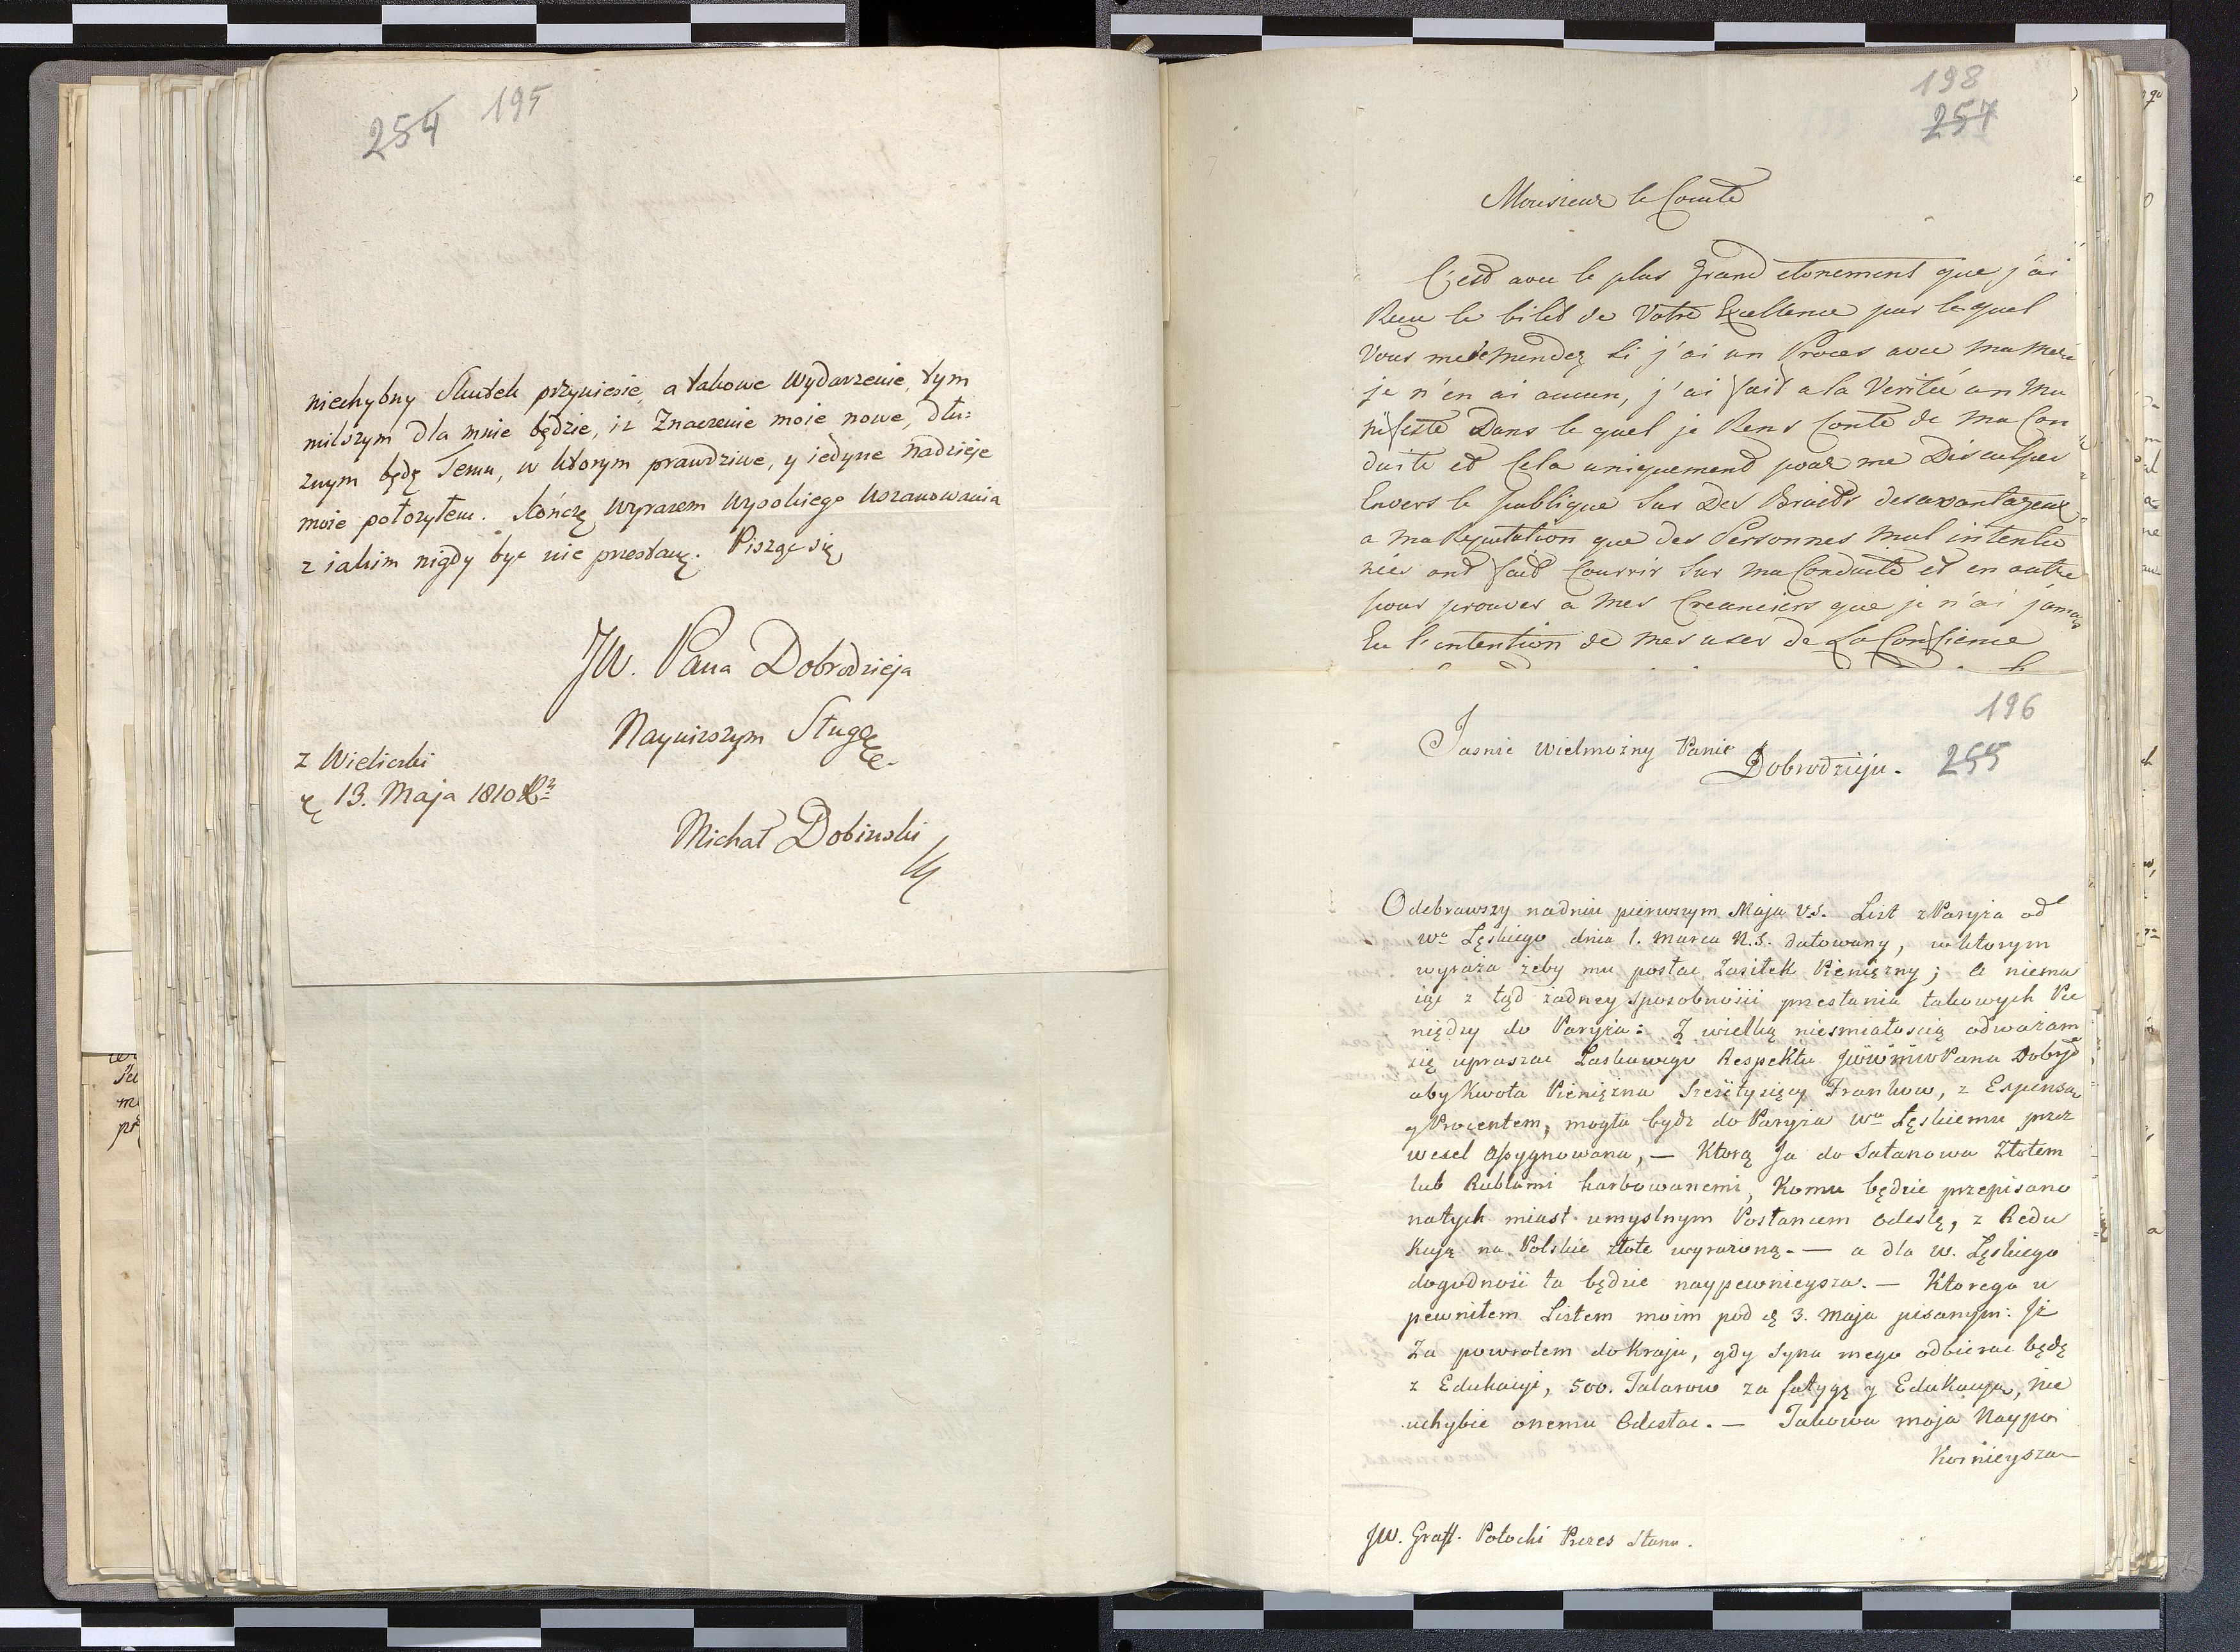 254 195
niechybny Skutek przyniesie, a takowe Wydarzenie, tym
milszym dla mnie będzie, iż Znaczenie moie nowe, dłu:
znym będę Temu, w ktorym prawdziwe, y iedyne nadzieje
moie położyłem. Kończę wyrazem Wysokiego Uszanowania
z iakim nigdy być nie przestanę. Pisząc się,
JW. Pana Dobrodzieja
Nayniższym Sługą
z Wieliczki
13. Maja 1810
Michał Dobinski
198
257
Monsieur le Comte
C'est avec le plus Grand etonement que j'ai
Recu le bilet de Votre Excellence par lequel
Vous me demendez si j'ai un Proces avec ma Mere
je n'en ai aucun, j'ai fait a la Verité un Ma
nifeste Dans le quel je Rens Conte de ma Con
duite et Cela uniquement pour me Disculper
Envers le publique Sur Des Bruits desavantageux
a ma Reputation que des Personnes mal intentio
nées ont fait Courrir Sur ma Conduite et en outre
pour prouver a mes Creanciers que je n'ai jamais
Eu l'intention de mesuser de La Confience
196
Jasnie Wielmożny Panie
Dobrodzieju. 255
Odebrawszy na dniu pierwszym Maja V.S. List z Paryża od
Wo Łęskiego dnia 1. Marca N.S. datowany, w ktorym
wyraża żeby mu posłac Zasiłek Pieniężny; a niema
iąc z tąd żadney sposobności przesłania takowych Pie
niędzy do Paryża: Z wielką niesmiałoscią odważam
się upraszac Łaskawego Respektu JWWMWPana Dobrd
aby Kwota Pieniężna Sześćtysięcy Frankow, z Expensą
y Procentem, mogła bydz do Paryża Wu Łęskiemu przez
wexel assygnowana, — Ktorą Ja do Satanowa Złotem
lub Rublami karbowanemi, Komu będzie przepisano
natych miast umyslnym Posłancem odeslę, z Redu
kcyą na Polskie złote wyrażoną. — a dla W. Łęskiego
dogodność ta będzie naypewnieysza. — Ktorego u
pewniłem Listem moim pod 3. Maja pisanym: Iż
Za powrotem do Kraju, gdy Syna mego odbierac będę
z Edukacyi, 500. Talarow za fatygę y Edukacyą, nie
uchybie onemu Odesłac. — Takowa moja Naypo
kornieysza
JW. Graff. Potocki Prezes Stanu.